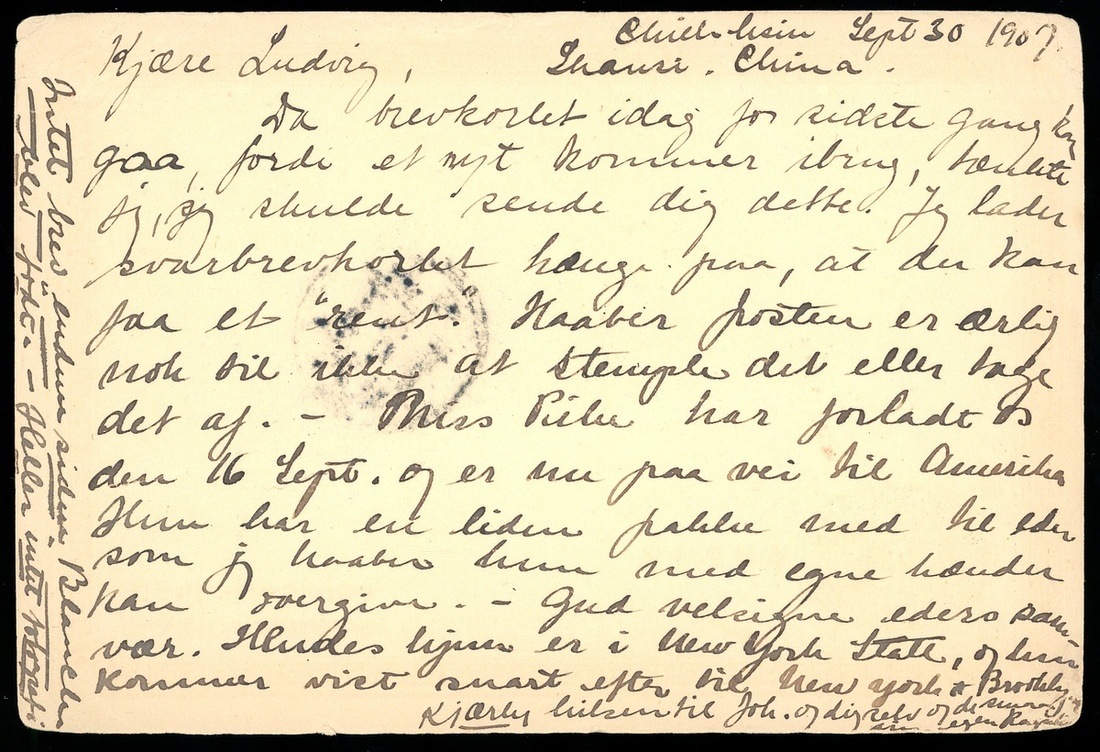 Chieh-hsin Sept 30 1907.
Shansi. China.
Kjære Ludvig,
Da brevkortet idag for sidste gang kan
gaa, fordi et nyt kommer ibrug, tænkte
jeg, jeg skulde sende dig dette. Jeg lader
svarbrevkortet hænge paa, at du kan
faa et "rent". Haaber posten er ærlig
nok til ikke at stemple det eller tage
det af. – Miss Pike har forladt os
den 16 Sept. og er nu paa vei til Amerika
Hun har en liden pakke med til eder
som jeg haaber hun med egne hænder
kan overgive. – Gud velsigne eders sam-
vær. Hendes hjem er i New York State, og hun
kommer vist snart efter til New York & Brooklyn
Kjærlig hilsen til Joh. og dig selv og de smaa fra
din egen
Intet brev endnu siden Blanchen
blev født. – Heller intet fotografi